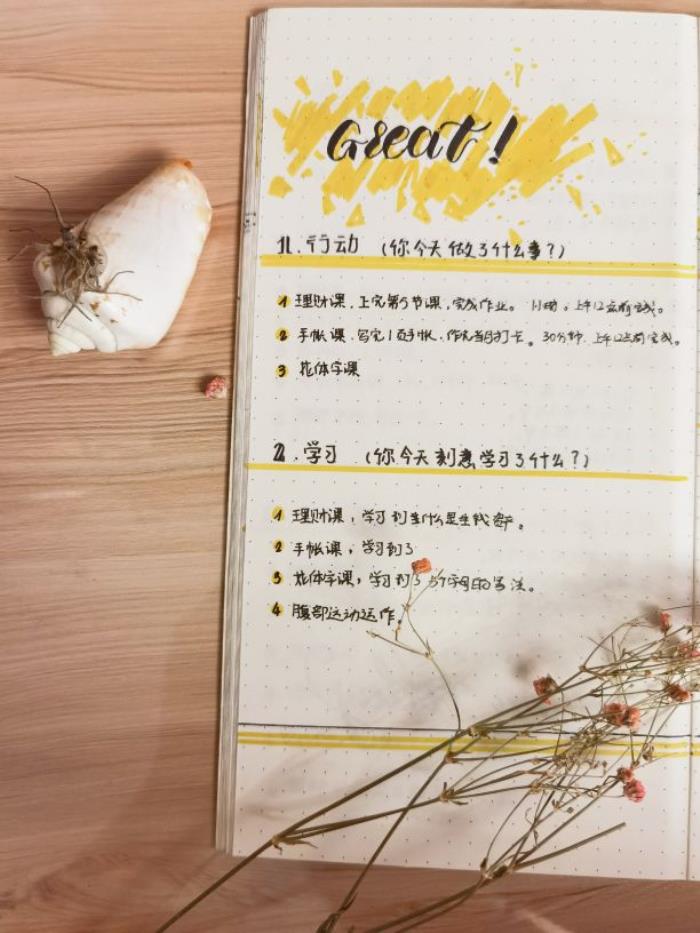 Great!
1. 行动 (你今天做了什么事?)
1 理财课,上完第5节课,完成作业。1小时。上午12点前完成。
2 手帐课,写完1页手帐,作完当日打卡。30分钟.上午12点前完成。
3 花体字课
2. 学习 (你今天刻意学习了什么?)
1 理财课,学习到了什么是生钱资产。
2 手帐课,学习到了
3 花体字课,学习到了5个字母的写法。
4 腹部运动运作。